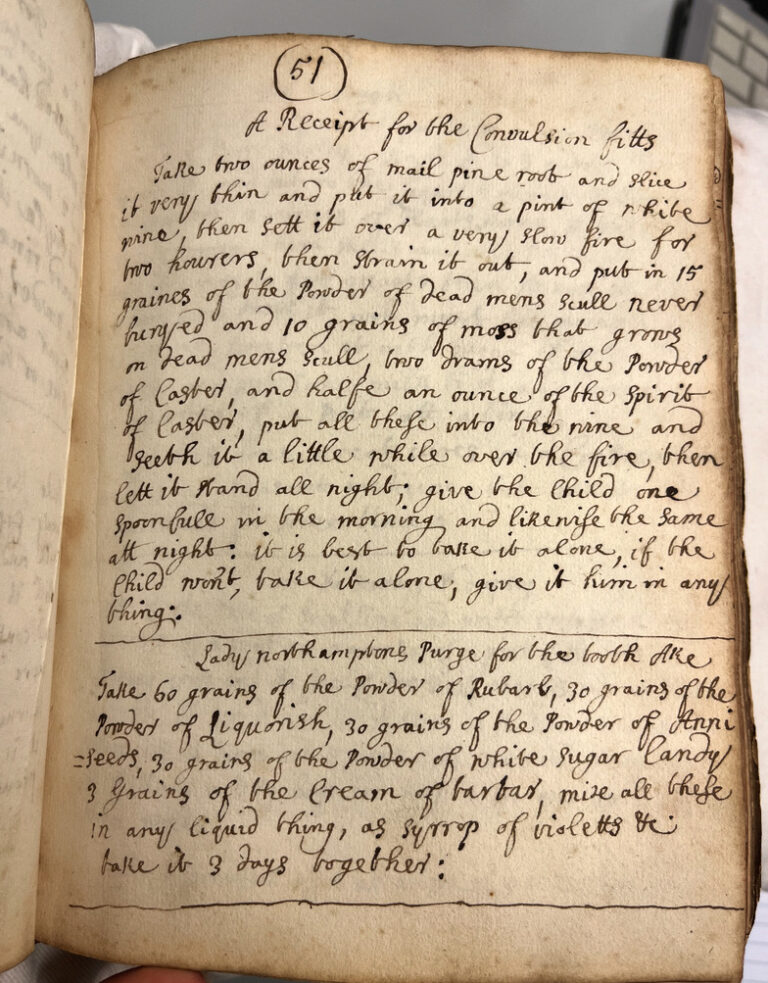 51
A Receipt for the Convulsion fitts
Take two ounces of mail pine root and slice
it very thin and put it into a pint of white
wine, then sett it over a very slow fire for
two hourers, then strain it out, and put in 15
graines of the Powder of dead mens scull never
buryed and 10 grains of moss that grows
on dead mens scull, two drams of the Powder
of Caster, and halfe an ounce of the spirit
of Caster, put all these into the wine and
seeth it a little while over the fire, then
lett it stand all night; give the Child one
spoonfull in the morning and likewise the same
att night: it is best to take it alone, if the
Child won't, take it alone, give it him in any
thing:.
Lady northamptons Purge for the tooth Ake
Take 60 grains of the Powder of Rubarb, 30 grains of the
Powder of Liquorish, 30 grains of the Powder of Anni
=seeds, 30 grains of the Powder of white sugar Candy
3 Grains of the Cream of tartar, mixe all these
in any liquid thing, as syrrop of violetts &c:
take it 3 days together: